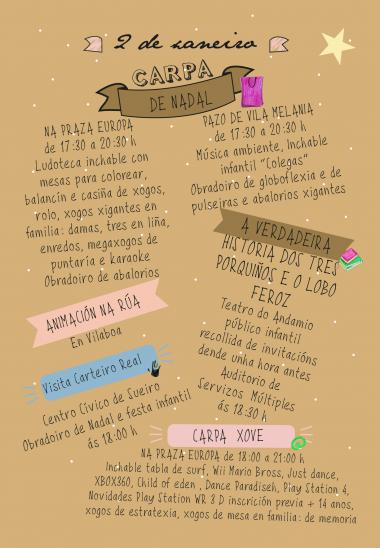 2 de xaneiro
CARPA
DE NADAL
NA PRAZA EUROPA
de 17:30 a 20:30 h
Ludoteca inchable con
mesas para colorear,
balancín e casiña de xogos,
rolo, xogos xigantes en
familia: damas, tres en liña,
enredos, megaxogos de
puntaría e karaoke
Obradoiro de abalorios
PAZO DE VILA MELANIA
de 17:30 a 20:30 h
Música ambiente, Inchable
infantil "Colegas"
Obradoiro de globoflexia e de
pulseiras e abalorios xigantes
ANIMACIÓN NA RÚA
En Vilaboa
Visita Carteiro Real
Centro Cívico de Sueiro
Obradoiro de Nadal e festa infantil
ás 18:00 h
A VERDADEIRA
HISTORIA DOS TRES
PORQUIÑOS E O LOBO
FEROZ
Teatro do Andamio
público infantil
recollida de invitacións
dende unha hora antes
Auditorio de
Servizos Múltiples
ás 18:30 h
CARPA XOVE
NA PRAZA EUROPA de 18:00 a 21:00 h
Inchable tabla de surf, Wii Mario Bross, Just dance,
XBOX360, Child of eden , Dance Paradiseh, Play Station 4,
Novidades Play Station WR 3 D inscrición previa + 14 anos,
xogos de estratexia, xogos de mesa en familia: de memoria